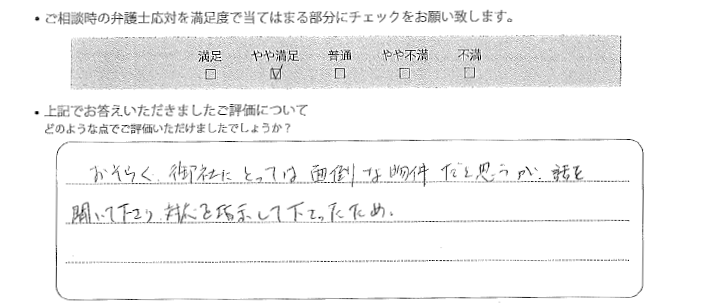 ・ご相談時の弁護士応対を満足度で当てはまる部分にチェックをお願い致します。
満足 やや満足 普通 やや不満 不満
□ ☑ □ □ □
・上記でお答えいただきましたご評価について
どのような点でご評価いただけましたでしょうか？
おそらく、御社にとっては面倒な物件だと思うが、話を
聞いて下さり対応を指示して下さったため。